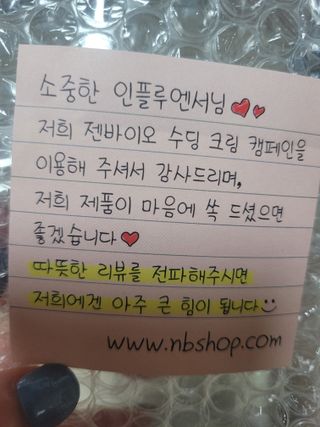 소중한 인플루엔서님
저희 젠바이오 수딩 크림 캠페인을
이용해 주셔서 감사드리며,
저희 제품이 마음에 쏙 드셨으면
좋겠습니다
따뜻한 리뷰를 전파해주시면
저희에겐 아주 큰 힘이 됩니다
www.nbshop.com